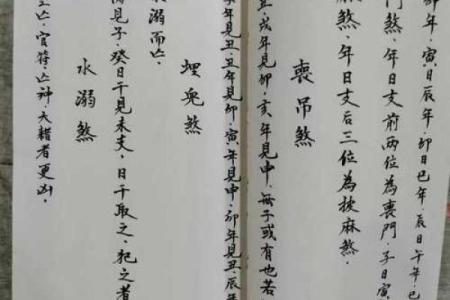 卯年．寅日辰年．卯日巳年．辰日午年．巳
門煞．年日支前兩位為喪門．子日寅
麻煞．年日支后三位為披麻煞．
喪吊煞
丑．戌年見卯．亥年見申．無子或有也若
年見丑．丑年見卯．寅年見申．卯年見丑．辰年
埋兒煞
溺而亡．
見子．癸日干見未支．日干取之．犯之者
水溺煞
亡．官符．亡神．天者更凶．